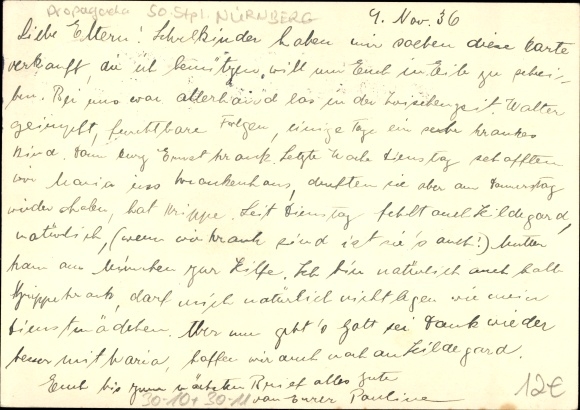 Propaganda So. Stpl. NÜRNBERG
4. Nov. 36
Liebe Eltern! Schulkinder haben mir soeben diese Karte
verkauft, die ich benützen will um Euch in Eile zu schrei-
ben. Bei uns war allerhand los in der Zwischenzeit. Walter
geimpft, furchtbare Folgen, einige Tage ein sehr krankes
Kind. Dann Ernst krank. Letzte Woche Dienstag schafften
wir Maria ins Krankenhaus, durften sie aber am Donnerstag
wieder holen, hat Grippe. Seit Dienstag fehlt auch Hildegard,
natürlich, (wenn wir krank sind ist sie's auch!) Mutter
kam aus München zur Hilfe. Ich bin natürlich auch halb
grippekrank, darf mich natürlich nicht legen wie mein
Dienstmädchen. Aber nun geht's Gott sei Dank wieder
besser mit Maria, hoffen wir auch noch an Hildegard.
Euch bis zum nächsten Brief alles Gute
von Eurer Pauline
30-10+30-11
12€